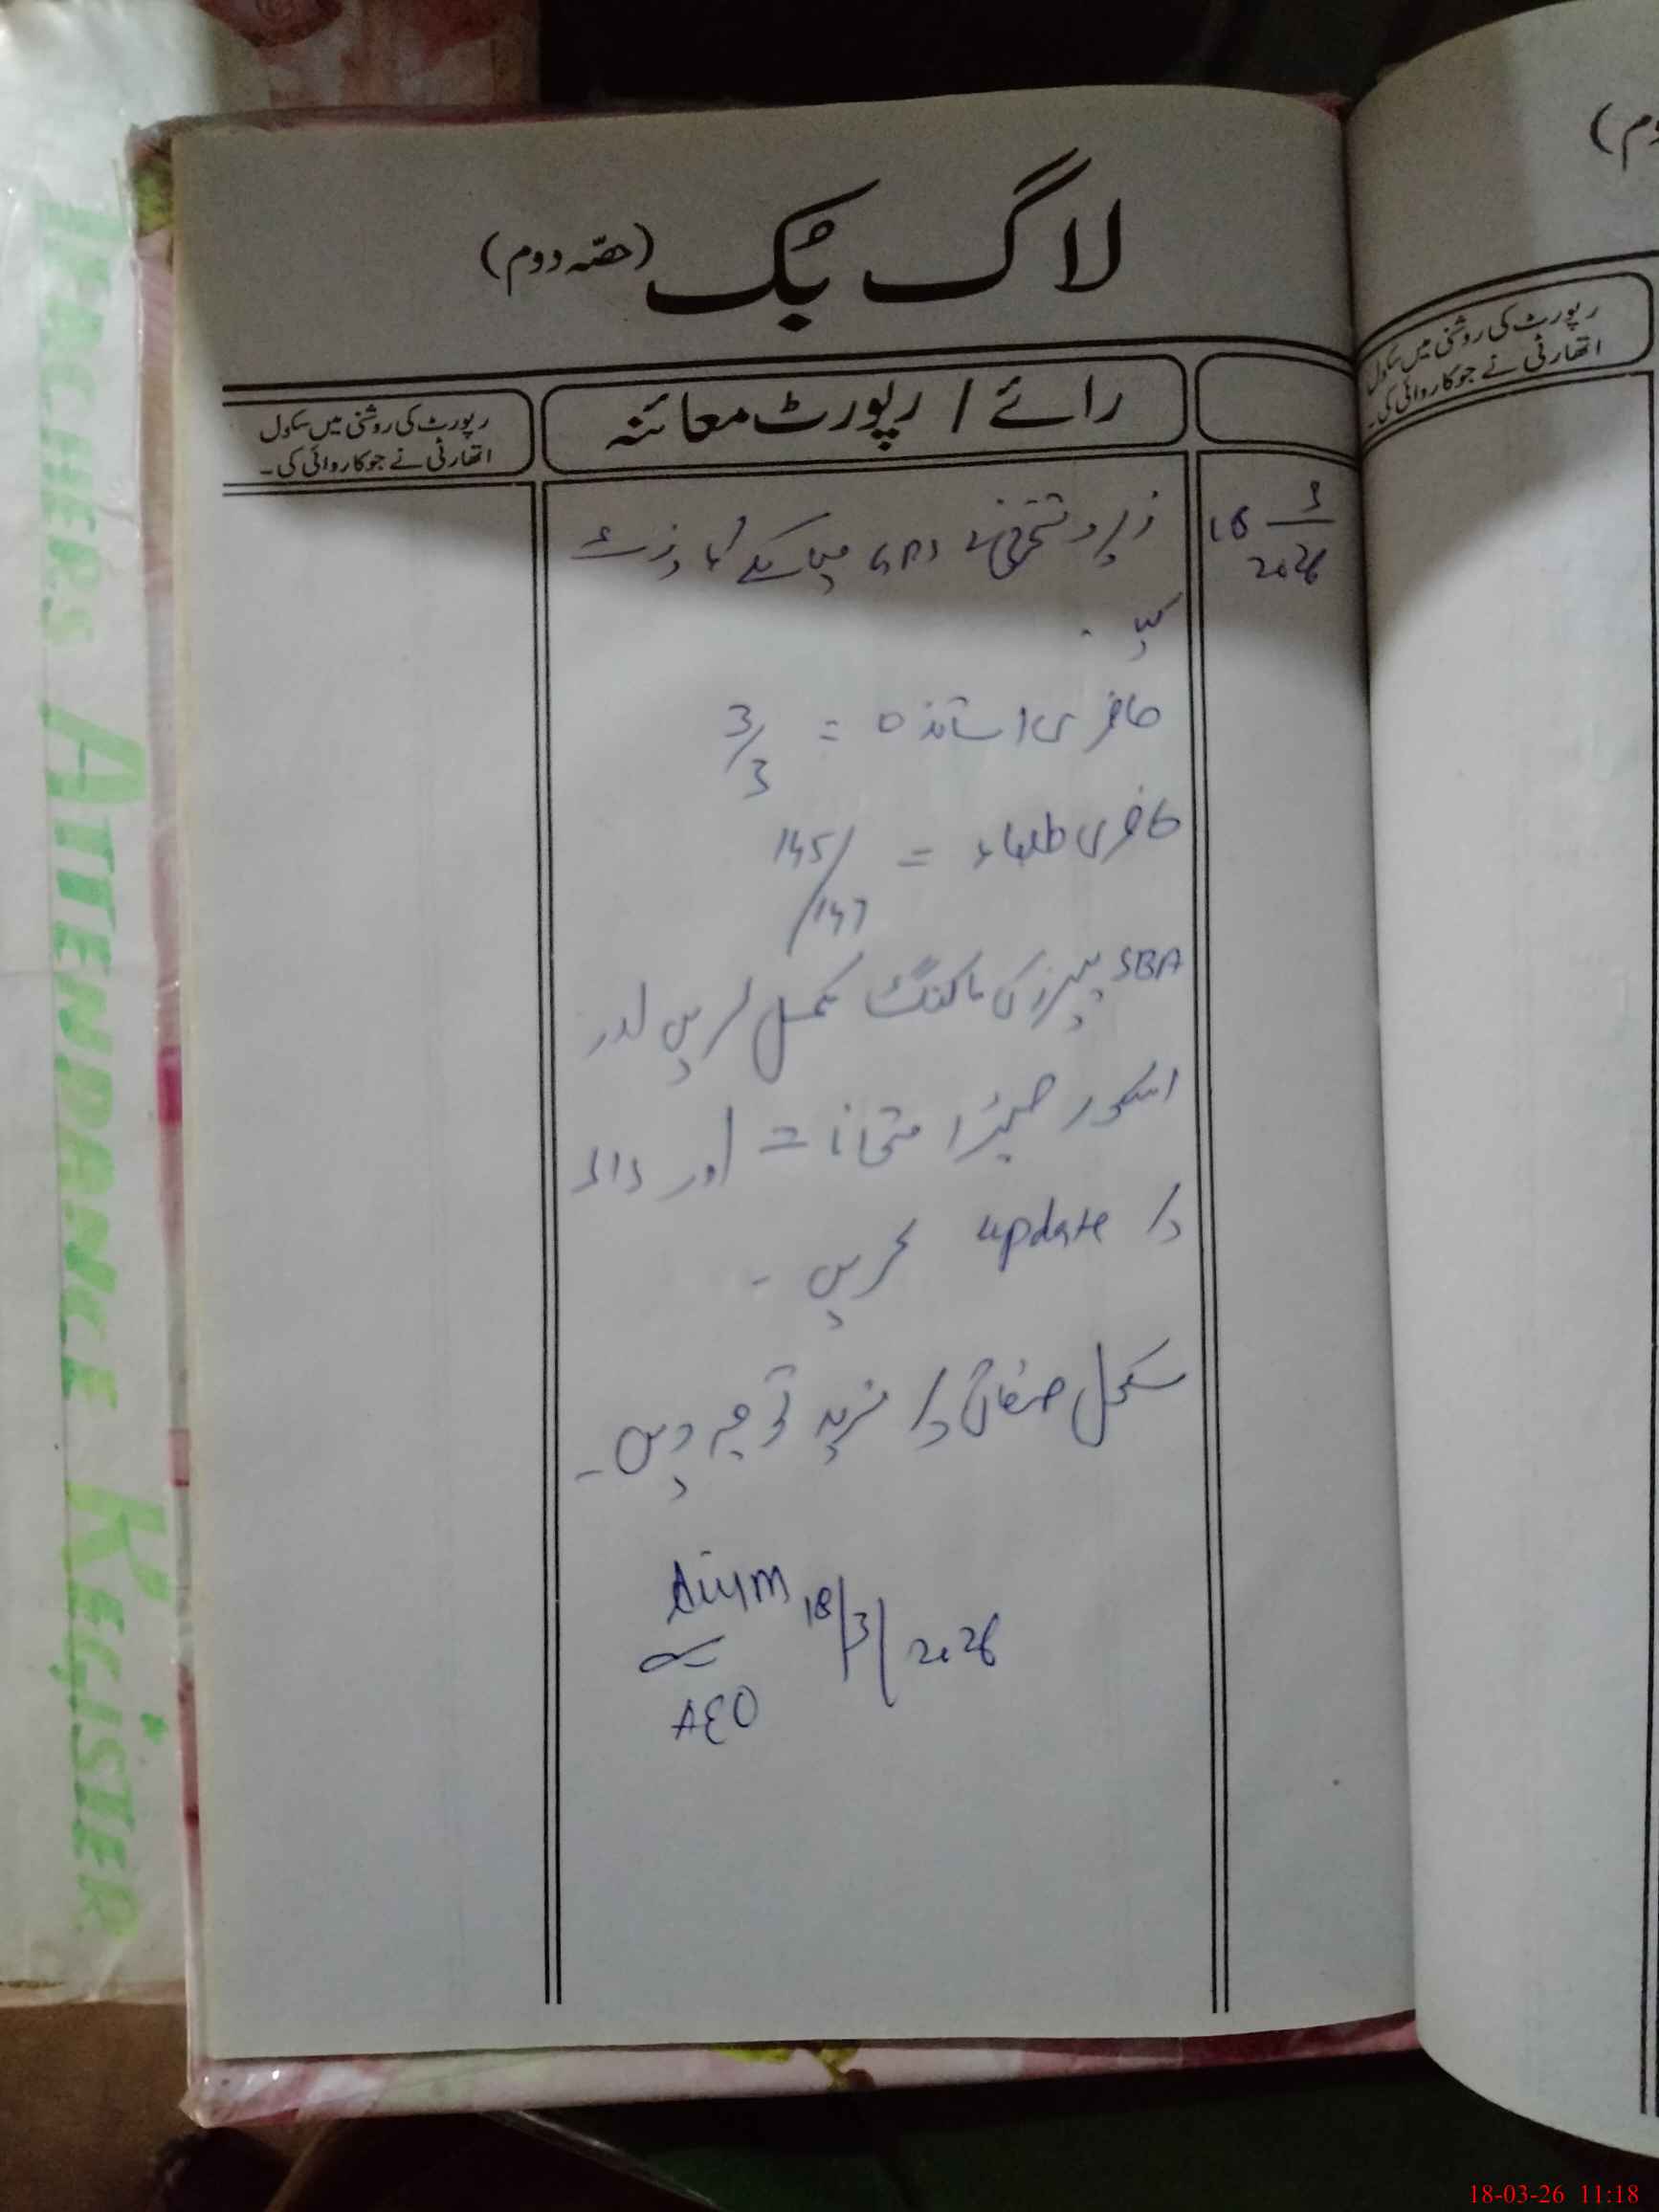 لاگ بُک (حصّہ دوم)
رائے / رپورٹ معائنہ
رپورٹ کی روشنی میں سکول
اتھارٹی نے جو کاروائی کی۔
18 3
2026
زیر دستخطی نے GPS کا وزٹ
کیا۔
حاضری اساتذہ = 3/3
حاضری طلباء = 145/147
SBA پیپرز کی مارکنگ مکمل کریں اور
اسکور امتحانات اور
update کریں ۔
سکول صفائی پر مزید توجہ دیں۔
18/3/2026
AEO
دوم)
رپورٹ کی روشنی میں سکول
اتھارٹی نے جو کاروائی کی۔
TEACHERS ATTENDANCE REGISTER
18-03-26 11:18